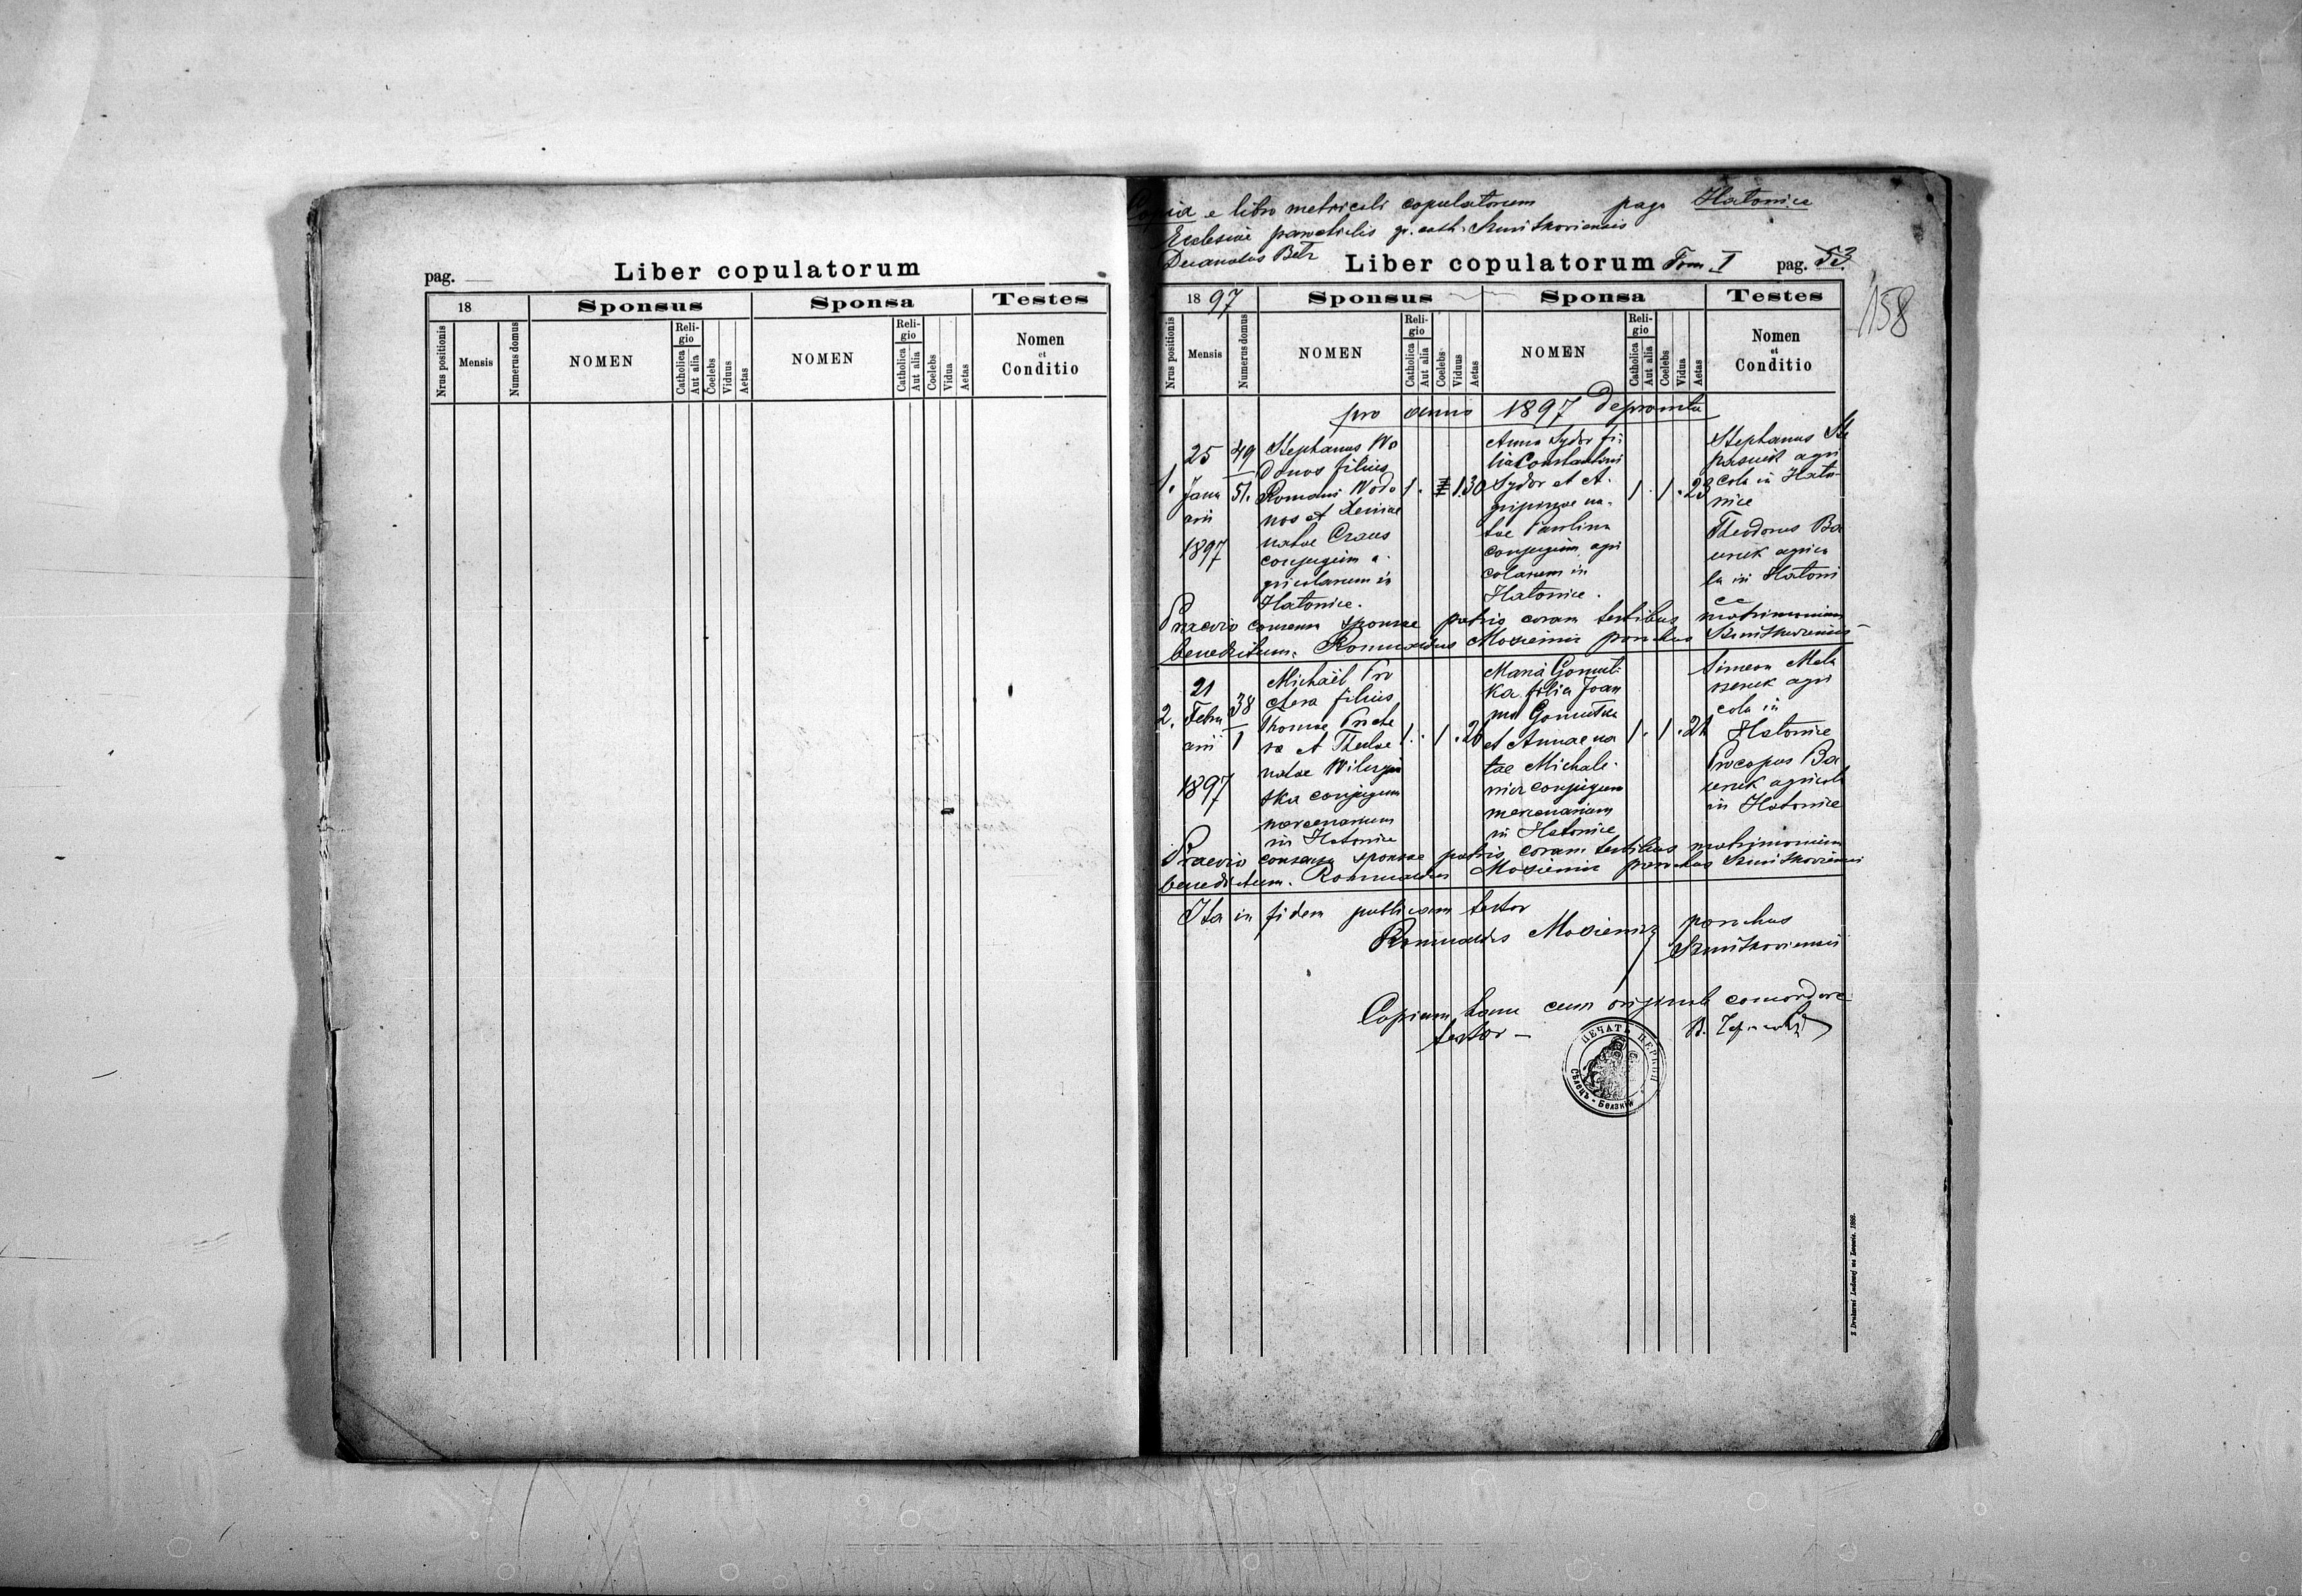 pag.
Liber copulatorum
18
Sponsus
Sponsa
Testes
Nrus positionis
Mensis
Numerus domus
NOMEN
Reli-
gio
Catholica
Aut alia
Coelebs
Viduus
Aetas
NOMEN
Reli-
gio
Catholica
Aut alia
Coelebs
Vidua
Aetas
Nomen
et
Conditio
Copia e libro metricali copulatorum pago Hatowice
Ecclesiae parochialis gr. cath. Szmitkoviensis
Decanatus Betz
Liber copulatorum Tom. I pag. 53
158
18 97
Sponsus
Sponsa
Testes
Nrus positionis
Mensis
Numerus domus
NOMEN
Reli-
gio
Catholica
Aut alia
Coelebs
Viduus
Aetas
NOMEN
Reli-
gio
Catholica
Aut alia
Coelebs
Vidua
Aetas
Nomen
et
Conditio
pro anno 1897 deprompta
1.
25
Janu
arii
1897
49
51.
Stephanus Wo
donos filius
Romani Wodo
nos et Xeniae
natae Craus
conjugum a-
gricolarum in
Hatowice.
1. 1 30
Anna Sydor fi-
lia Constantini
Sydor et A-
gripinae na-
tae Paulina
conjugum agri
colarum in
Hatowice.
1. 1. 23
Stephanus Ste
pasiuk agri
cola in Hato-
wice
Theodorus Ba
agrico
la in Hatowi
ce
Praevio consensu sponsae patris coram testibus matrimonium
benedictum. Romualdus parochus Szmitkoviensis
2.
21
Febru
arii
1897
38
1
Michaël Pro
filius
Thomae
et Theclae
natae
ska conjugum
mercenarium
in Hatowice
1. 1. 26
Maria Gomul-
ka filia Joan
nis Gomulka
et Annae na
tae Michale-
wicz conjugum
mercenarium
in Hatowice
1. 1. 21
Simeon
agri
cola in
Hatowice
Procopus Ba
agricola
in Hatowice
Praevio consensu sponsae patris coram testibus matrimonium
benedictum. Romualdus parochus Szmitkoviensis
Ita in fidem publicam testor
Romualdus parochus
Szmitkoviensis
Copiam hanc cum originali concordare
testor –
ПЕЧАТЬ ЦЕРКОВ
СѢЛЕЦЬ - БЕЛЗКІЙ
Z Drukarni Ludowej we Lwowie. 1886.